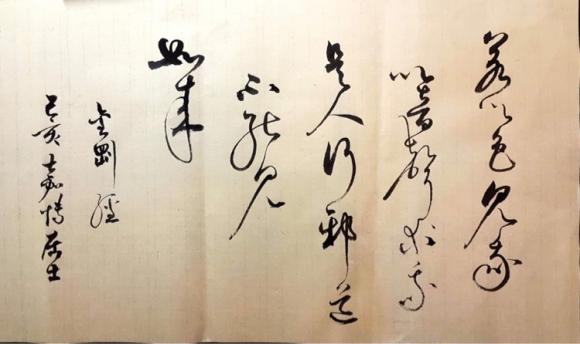 若以色見我
以音聲求我
是人行邪道
不能見
如來
金剛經
己亥嘉博居士